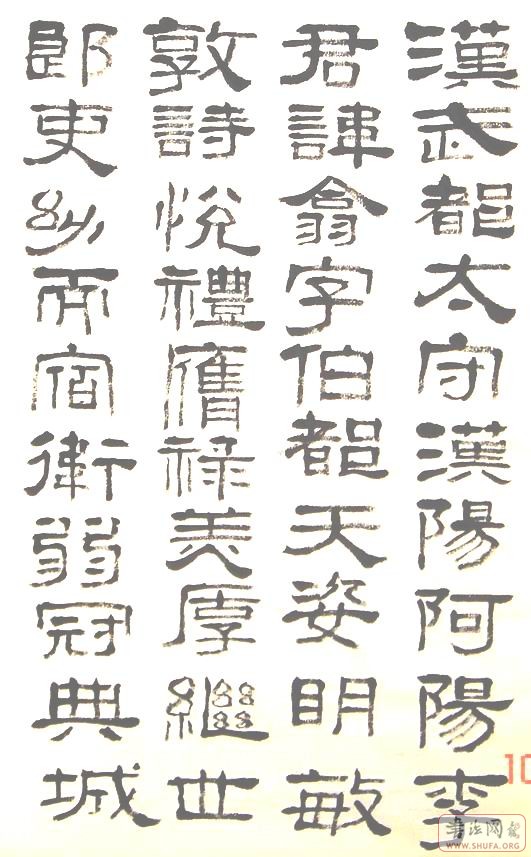 漢武都太守漢陽阿陽李
君諱翕字伯都天姿明敏
敦詩悅禮膺祿美厚繼世
郎吏幼而宿衛弱冠典城
10
書法网报
WWW.SHUFA.ORG